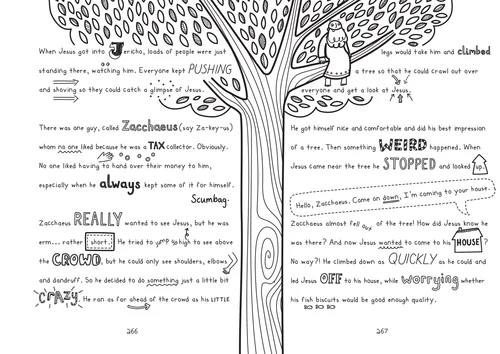 When Jesus got into Jericho, loads of people were just
standing there, watching him. Everyone kept PUSHING
and shoving so they could catch a glimpse of Jesus.
There was one guy, called Zacchaeus (say Za-key-us)
whom no one liked because he was a TAX collector. Obviously.
No one liked having to hand over their money to him,
especially when he always kept some of it for himself.
Scumbag.
Zacchaeus REALLY wanted to see Jesus, but he was
erm... rather short. He tried to jump up high to see above
the CROWD, but he could only see shoulders, elbows
and dandruff. So he decided to do something just a little bit
CRAZY. He ran as far ahead of the crowd as his LITTLE
266
legs would take him and climbed
a tree so that he could crawl out over
everyone and get a look at Jesus.
He got himself nice and comfortable and did his best impression
of a tree. Then something WEIRD happened. When
Jesus came near the tree he STOPPED and looked up.
Hello, Zacchaeus. Come on down, I'm coming to your house.
Zacchaeus almost fell out of the tree! How did Jesus know he
was there? And now Jesus wanted to come to his HOUSE?
No way?! He climbed down as QUICKLY as he could and
led Jesus OFF to his house, while worrying whether
his fish biscuits would be good enough quality.
267